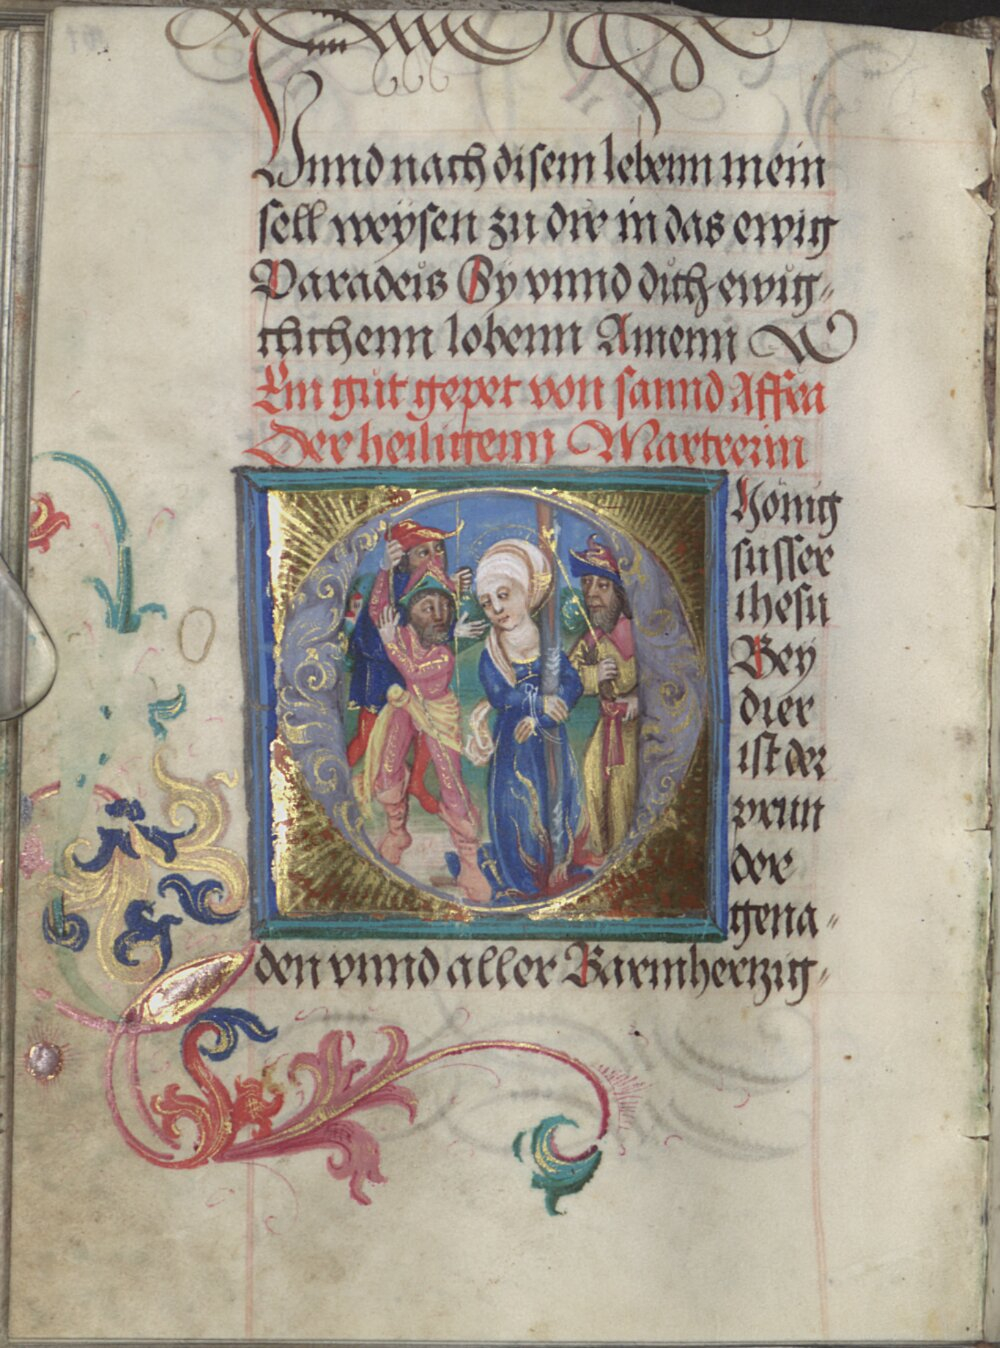 Vnnd nach disem lebenn mein
sell weÿsen zu dir in das ewig
Paradeis Gy vnnd dich ewig=
clichenn lobenn Amenn
Ein gůt gepet von sannd Affra
Der heiligenn Martrerin
Hönig
süsser
ihesu
Bey
dier
ist der
prun
der
gena=
den vnnd aller Barmhertzig=